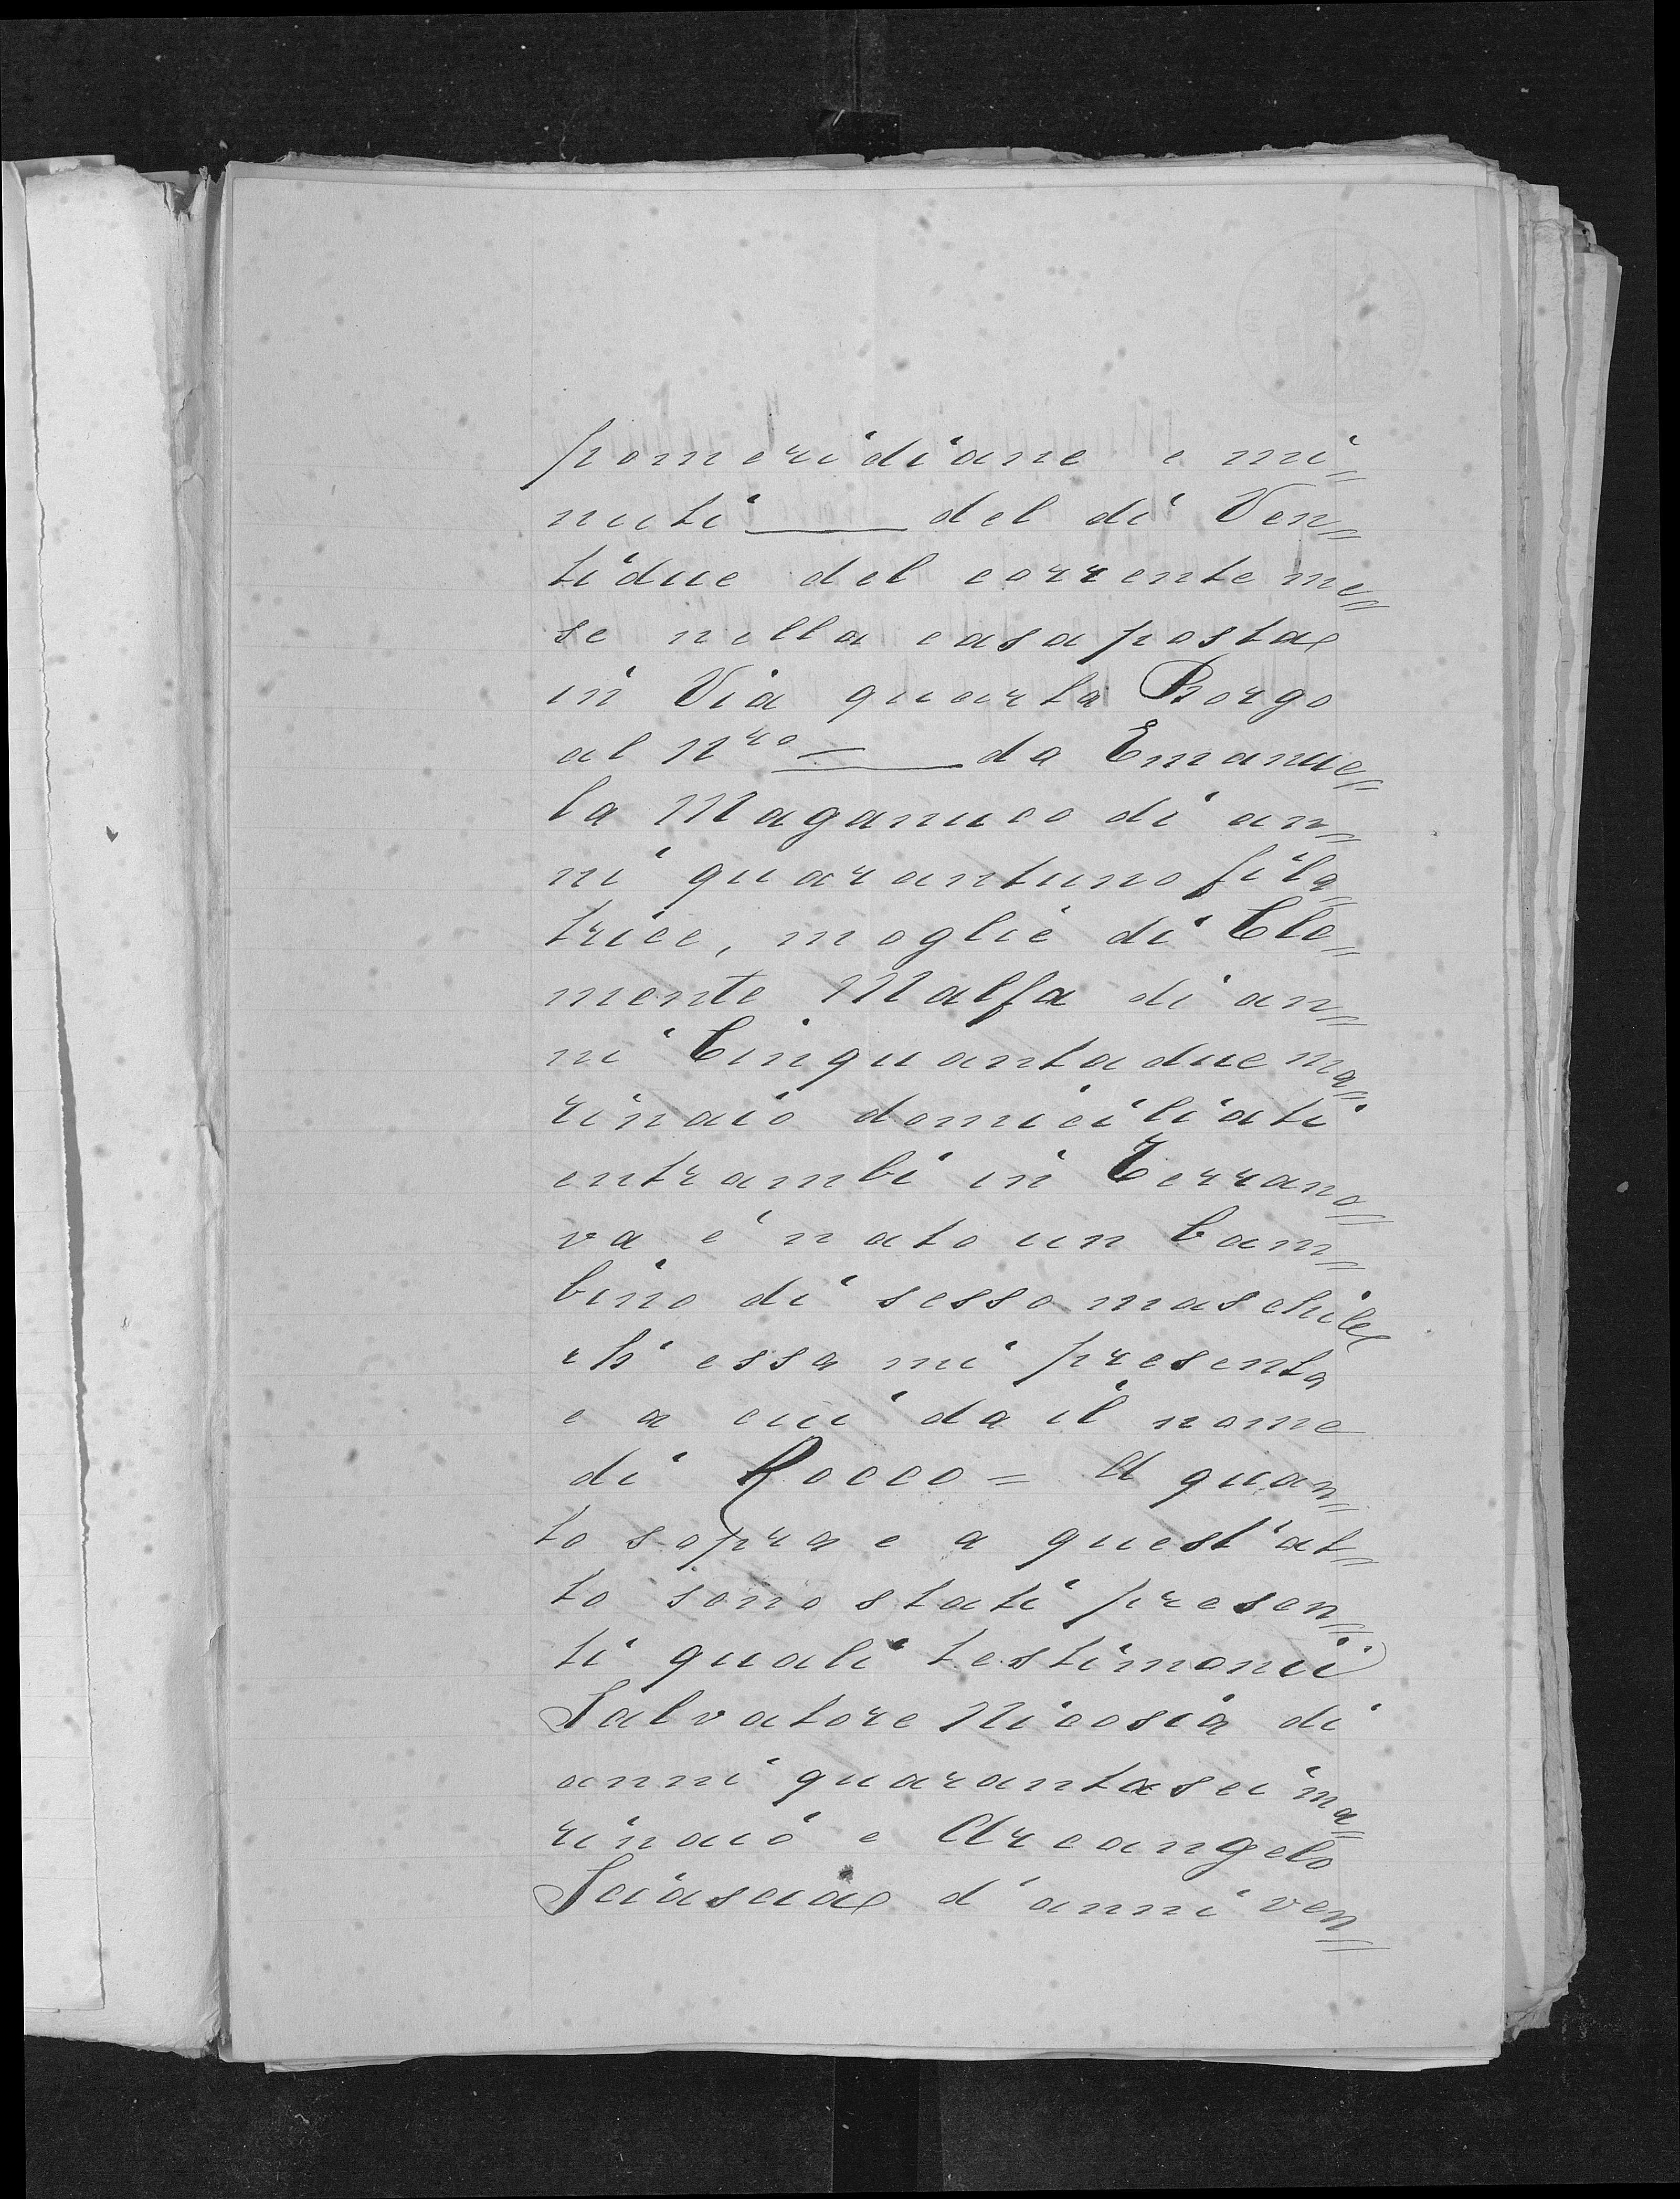 pomeridiane e mi=
nuti ___ del dì Ven=
tidue del corrente me=
se nella casa posta
in Via quarta Borgo
al Nro ___ da Emanue=
la Maganuco di an=
ni quarantuno fila=
trice, moglie di Cle=
mente Malfa di an=
ni Cinquantadue ma=
rinaio domiciliati
entrambi in Terrano=
va è nato un bam=
bino di sesso maschile
ch'essa mi presenta
e a cui da il nome
di Rocco = A quan=
to sopra e a quest'at=
to sono stati presen=
ti quali testimonii
Salvatore Nicosia di
anni quarantasei ma=
rinaio e Arcangelo
Sciascia d'anni ven=